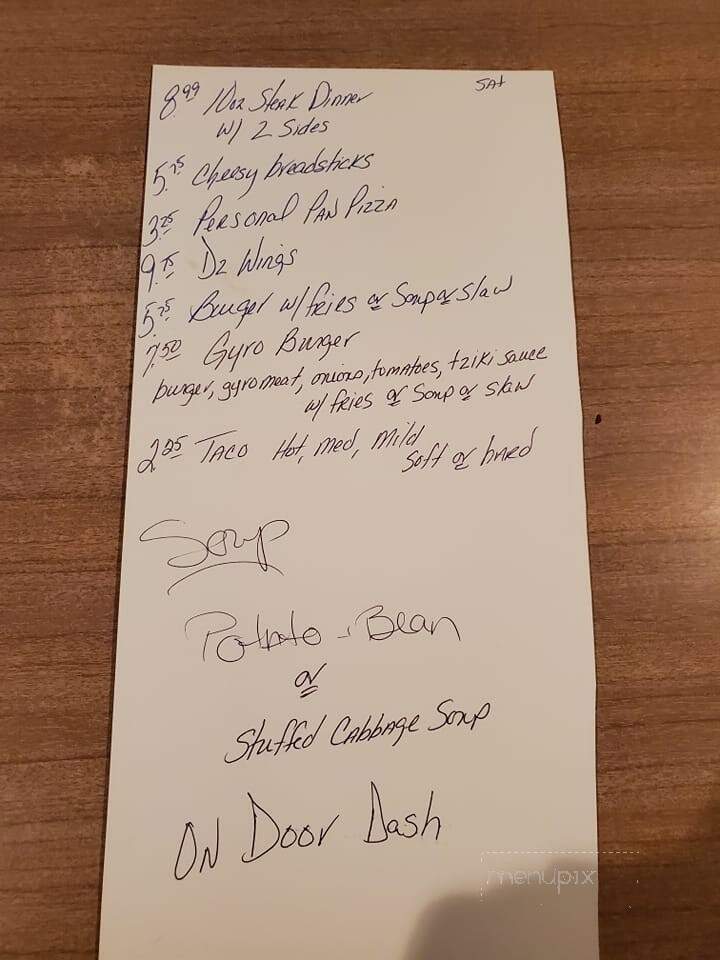 SAt
8.99 10oz Steak Dinner
w/ 2 Sides
5.75 Cheesy breadsticks
3.25 Personal Pan Pizza
9.75 Dz Wings
5.75 Burger w/ fries or Soup or Slaw
7.50 Gyro Burger
burger, gyro meat, onions, tomatoes, tziki sauce
w/ fries or Soup or slaw
2.25 TACO Hot, Med, Mild
Soft or hard
Soup
Potato - Bean
or
Stuffed Cabbage Soup
ON Door Dash
menupix